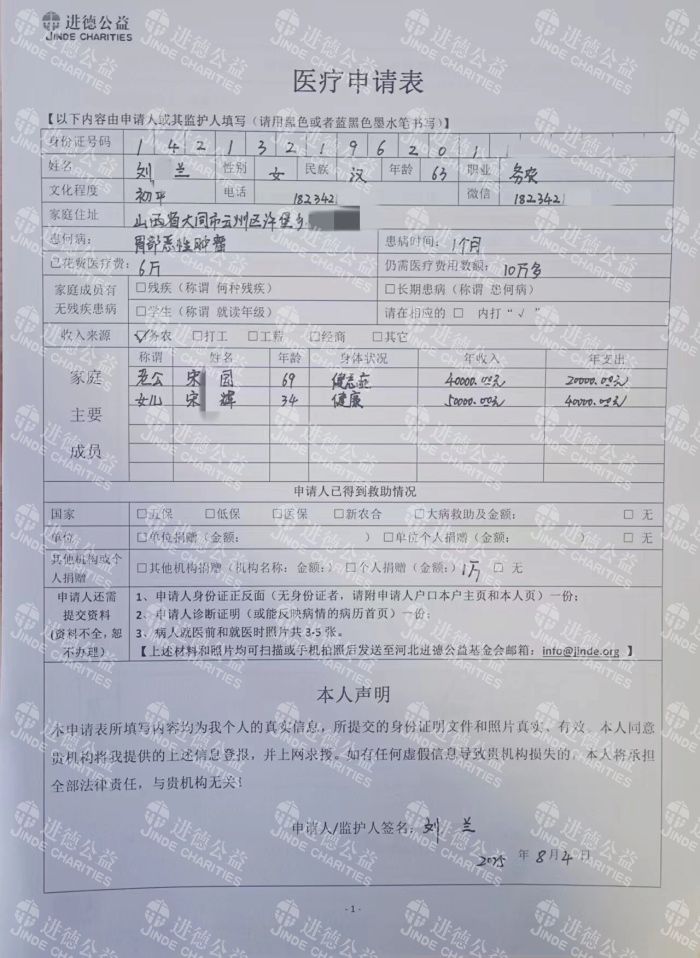 进德公益
JINDE CHARITIES
医疗申请表
【以下内容由申请人或其监护人填写（请用黑色或者蓝黑色墨水笔书写）】
身份证号码 1 4 2 1 3 2 1 9 6 2 0 1
姓名 刘 兰 性别 女 民族 汉 年龄 63 职业 务农
文化程度 初平 电话 182342 微信 182342
家庭住址 山西省大同市云州区许堡乡
患何病： 胃部恶性肿瘤 患病时间： 1个月
已花费医疗费： 6万 仍需医疗费用数额： 10万多
家庭成员有无残疾患病 □残疾（称谓 何种残疾） □长期患病（称谓 患何病）
□学生（称谓 就读年级） 请在相应的 □ 内打“√ ”
收入来源 ☑务农 □打工 □工薪 □经商 □其它
家庭主要成员 称谓 姓名 年龄 身体状况 年收入 年支出
老公 宋 国 69 40000.00元 20000.00元
女儿 宋 辉 34 健康 50000.00元 40000.00元
申请人已得到救助情况
国家 □五保 □低保 □医保 □新农合 □大病救助及金额： □ 无
单位 □单位捐赠（金额： ） □单位个人捐赠（金额： ） □ 无
其他机构或个人捐赠 □其他机构捐赠（机构名称： 金额：） □个人捐赠（金额：）1万 □ 无
申请人还需提交资料（资料不全，恕不办理）
1、申请人身份证正反面（无身份证者，请附申请人户口本户主页和本人页）一份；
2、申请人诊断证明（或能反映病情的病历首页）一份；
3、病人就医前和就医时照片共 3-5 张。
【上述材料和照片均可扫描或手机拍照后发送至河北进德公益基金会邮箱：info@jinde.org 】
本人声明
本申请表所填写内容均为我个人的真实信息，所提交的身份证明文件和照片真实、有效。本人同意
贵机构将我提供的上述信息登报，并上网求援。如有任何虚假信息导致贵机构损失的，本人将承担
全部法律责任，与贵机构无关！
申请人/监护人签名：刘 兰
2025 年 8月4日
- 1 -